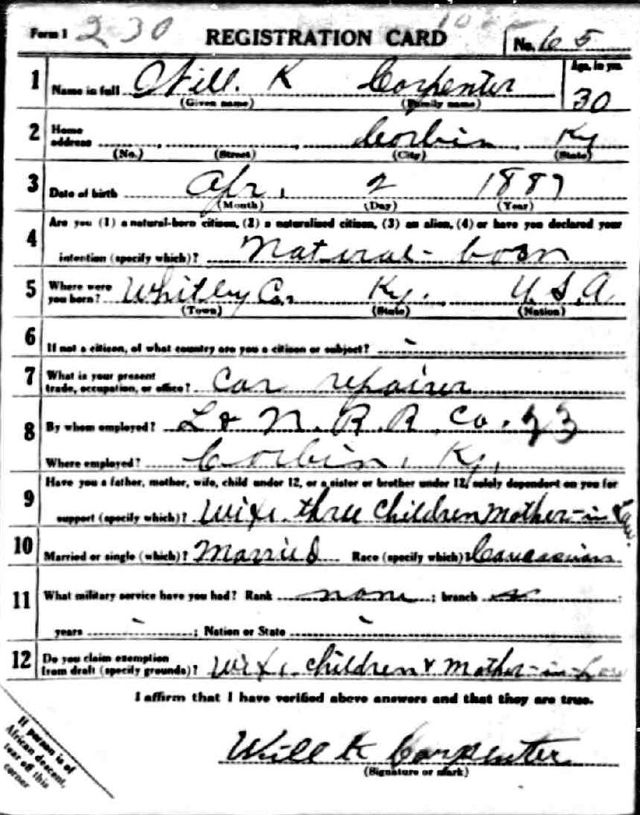 Form 1 230 REGISTRATION CARD No. 65
1 Name in full Will. K Carpenter Age, in yrs.
(Given name) (Family name) 30
2 Home address Corbin Ky
(No.) (Street) (City) (State)
3 Date of birth Apr. 2 1887
(Month) (Day) (Year)
4 Are you (1) a natural-born citizen, (2) a naturalized citizen, (3) an alien, (4) or have you declared your
intention (specify which)? Natural-born
5 Where were you born? Whitley Co. Ky. U.S.A
(Town) (State) (Nation)
6 If not a citizen, of what country are you a citizen or subject? -
7 What is your present trade, occupation, or office? Car repairer
8 By whom employed? L & N. R. R. Co. 23
Where employed? Corbin, Ky.
9 Have you a father, mother, wife, child under 12, or a sister or brother under 12, solely dependent on you for
support (specify which)? Wife. three children mother-in law.
10 Married or single (which)? Married Race (specify which)? Caucasian
11 What military service have you had? Rank none ; branch
years - ; Nation or State -
12 Do you claim exemption from draft (specify grounds)? Wife. children & mother-in-law
I affirm that I have verified above answers and that they are true.
Will K Carpenter
(Signature or mark)
If person is of
African descent,
tear off this
corner